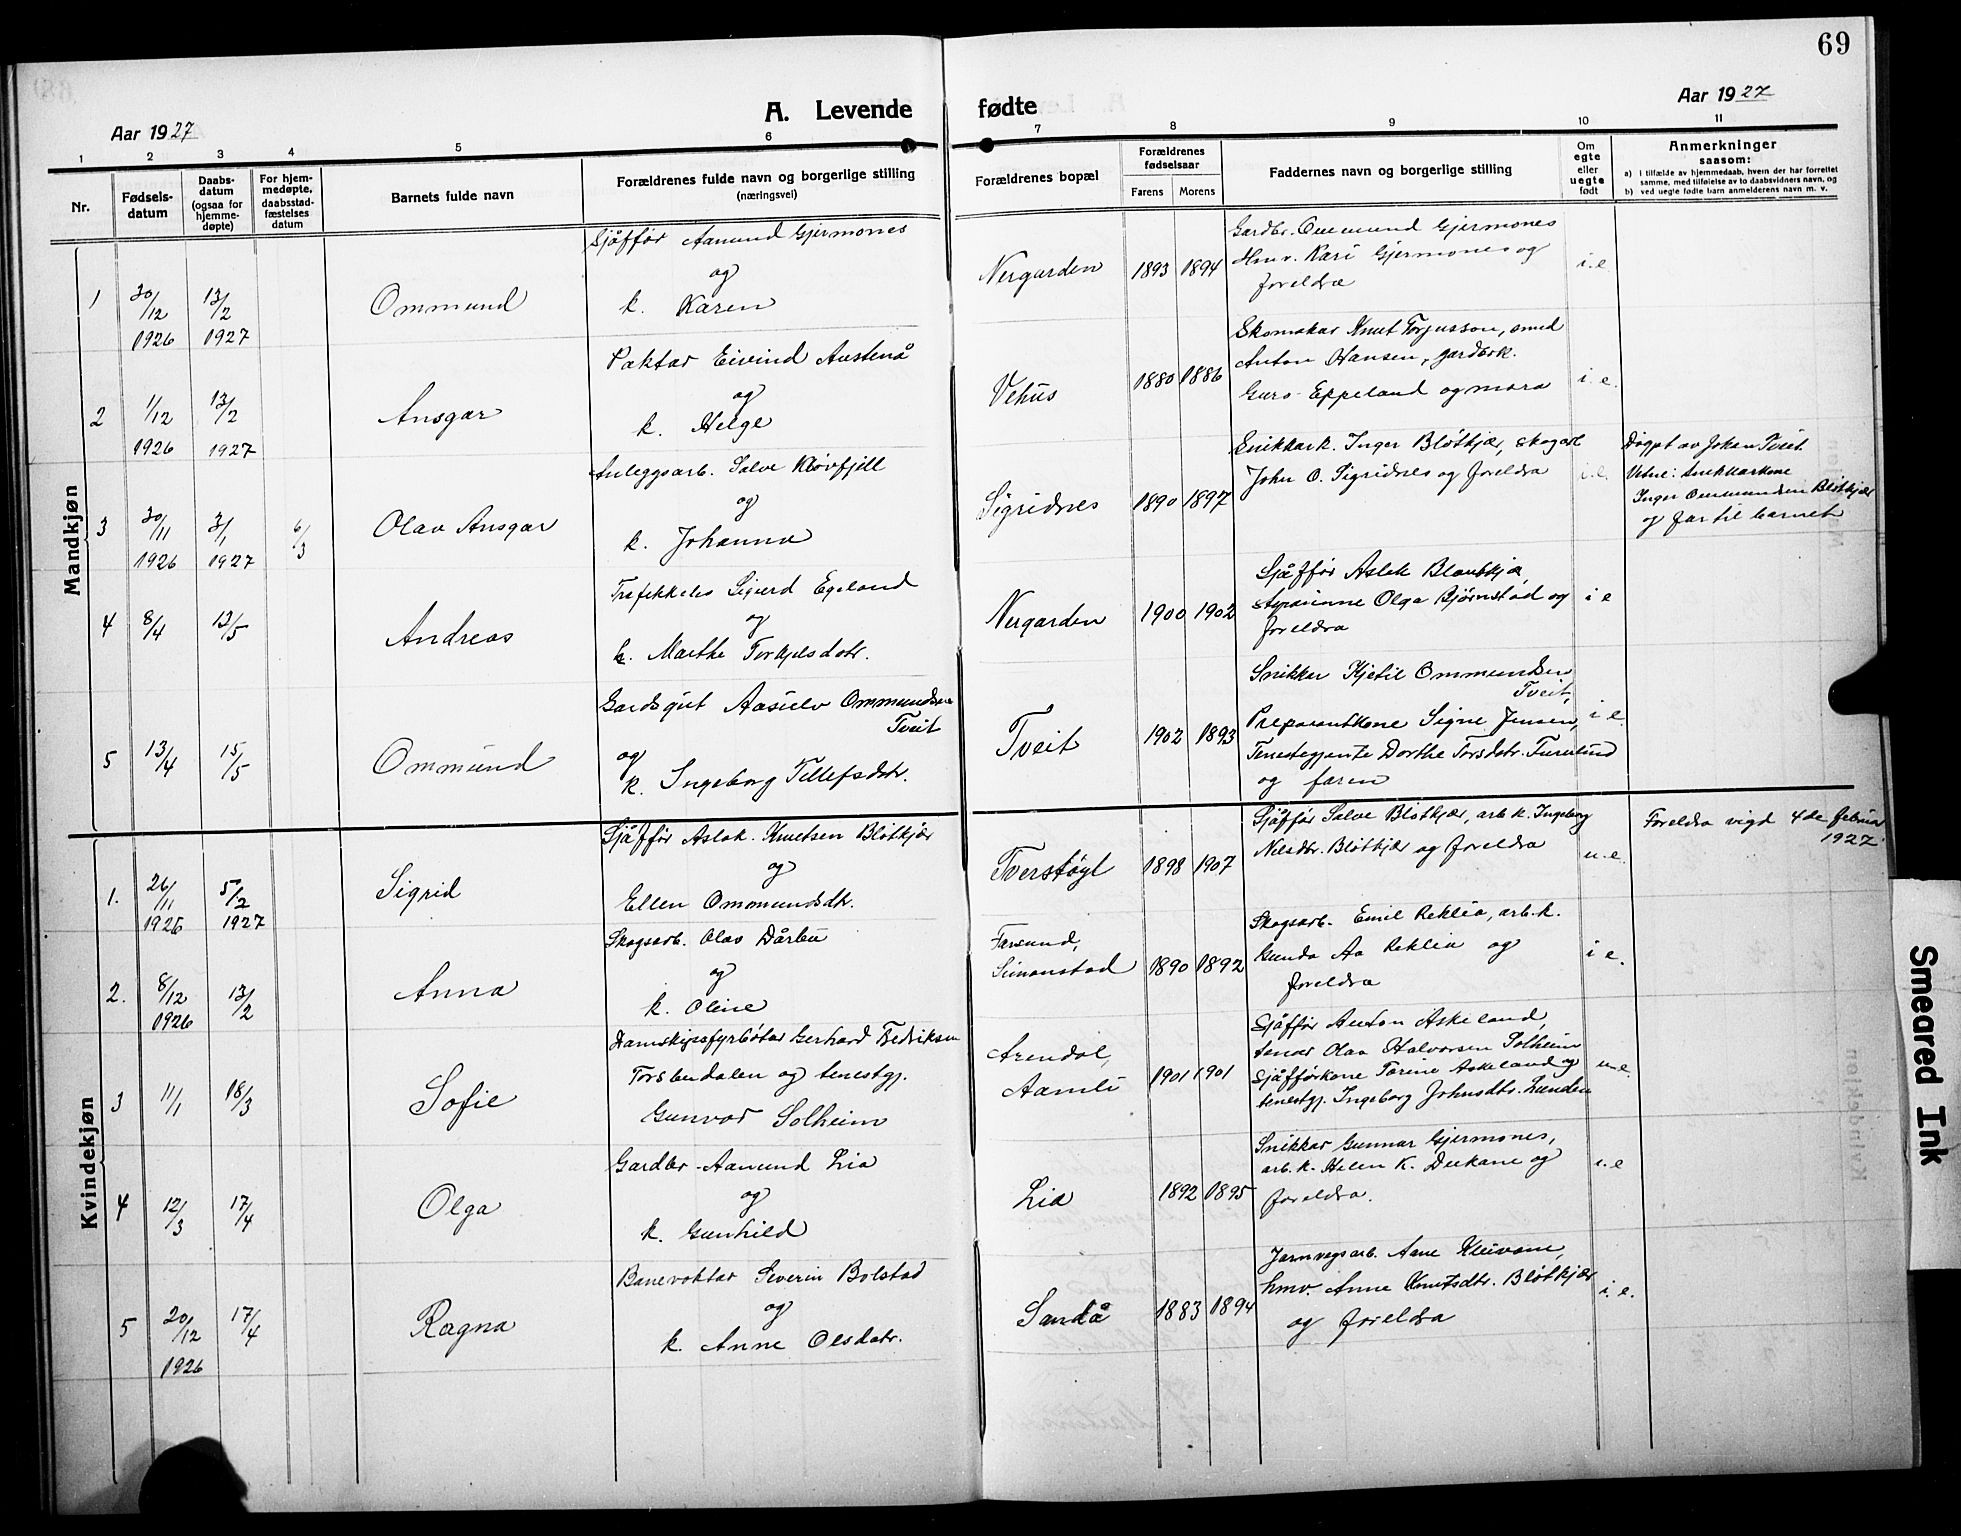 69
A. Levende fødte
Aar 1927
Aar 1927
1 2 3 4 5 6 7 8 9 10 11
Nr.
Fødsels-
datum
Daabs-
datum
(ogsaa for
hjemme-
døpte)
For hjem-
medøpte,
daabsstad-
fæstelses
datum
Barnets fulde navn
Forældrenes fulde navn og borgerlige stilling
(næringsvei)
Forældrenes bopæl
Forældrenes
fødselsaar
Farens Morens
Faddernes navn og borgerlige stilling
Om
egte
eller
uegte
født
Anmerkninger
saasom:
a) I tilfælde av hjemmedaab, hvem der har forrettet
samme, med tilføielse av to daabsvidners navn, og
b) ved uegte fødte barn anmelderens navn m. v.
Mandkjøn
1
30/12
1926
13/2
1927
Ommund
Sjåffør Aamund Gjermones
og
k. Karen
Nergarden
1893 1894
Gardbr. Ommund Gjermones
Hmv. Kari Gjermones og
foreldra
i.e.
2
1/12
1926
13/2
1927
Ansgar
Paktar Eivind Austenå
og
k. Helge
Vehus
1880 1886
Skomakar Knut Torjusson, smed
Anton Hansen, gardbrk.
Guro Eppeland og mora
i.e.
3
30/11
1926
3/1
1927
6/3
Olav Ansgar
Anleggsarb. Salve Kløvfjell
og
k. Johanna
Sigridnes
1890 1897
Snikkark. Inger Bløtkjær, skogarb
John O. Sigridnes og foreldra
i.e.
Døypt av Johan Tveit.
Vitne: snikkarkone
Inger Ommundsen Bløtkjær
og far til barnet
4
8/4
13/5
Andreas
Trafikkeles Sigurd Egeland
og
k. Marthe Torkjelsdotr.
Nergarden
1900 1902
Sjåffør Aslak Blautkjær,
Olga Bjørnstad og
foreldra
i e
5
13/4
15/5
Ommund
Gardsgut Aasulv Ommundsen
Tveit
og
k. Ingeborg Tellefsdtr.
Tveit
1902 1893
Snikkar Kjetil Ommundsen
Tveit,
Preparantkone Signe Jensen,
Tenestegjente Dorthe Torsdotr.
og faren
i e
Kvindekjøn
1.
26/11
1926
5/2
1927
Sigrid
Sjåffør Aslak Knutsen Bløtkjær
og
Ellen Ommundsdtr.
Tverstøyl
1898 1907
Sjåffør Salve Bløtkjær, arb.k. Ingeborg
Nilsdtr. Bløtkjær og foreldra
u.e.
Foreldra vigd 4de februar
1927
2.
8/12
1926
13/2
Anna
Skogsarb. Olav Dårbu
og
k. Oline
Farsund,
Simonstad
1890 1892
Skogsarb. Emil Reklia, arb.k.
Gunda Aa Reklia og
foreldra
i e.
3
11/1
18/3
Sofie
Damskipsfyrbøtar Gerhard Fredriksen
Torsbudalen og tenestgj.
Gunvor Solheim
Arendal,
Aamli
1901 1901
Sjåffør Anton Askeland,
tenar Olav Halvorsen Solheim
Sjåfførkone Torine Askeland og
tenestgj. Ingeborg Johnsdtr. Lunden
u.e.
4
12/3
17/4
Olga
Gardbr. Aamund Lia
og
k. Gunhild
Lia
1892 1895
Snikkar Gunnar Gjermones,
arb.k. Helen K. Dukane og
foreldra.
i.e
5
20/12
1926
17/4
Ragna
Banevaktar Severin Bolstad
og
k. Anne Olsdotr.
Sandå
1883 1894
Jarnvegsarb. Aane Kleivane,
hmv. Anne Knutsdtr. Bløtkjær
og foreldra
i.e.
Smeared Ink